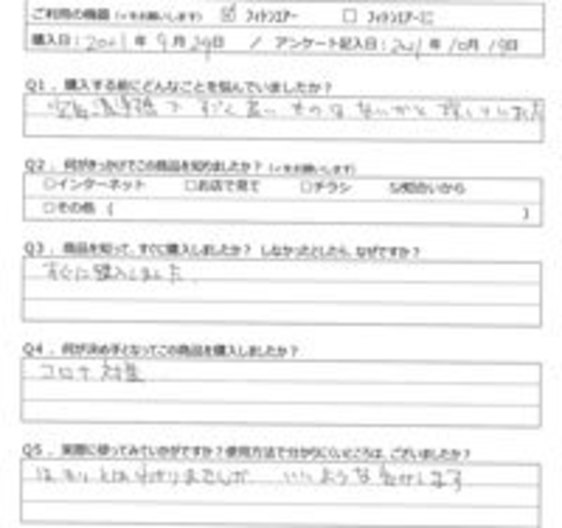 ご利用の機器（✓をお願いします） ☑ フィトンエアー □ フィトンエアーミニ
購入日：2021年9月29日 / アンケート記入日：2021年10月19日
Q1．購入する前にどんなことを悩んでいましたか？
空気清浄機で すごく良い ものはないかと 探していました
Q2．何がきっかけでこの商品を知りましたか？（✓をお願いします）
□インターネット □お店で見て □チラシ ☑知合いから
□その他（ ）
Q3．商品を知って、すぐに購入しましたか？ しなかったとしたら、なぜですか？
すぐに購入しました。
Q4．何が決め手となってこの商品を購入しましたか？
コロナ対策
Q5．実際に使ってみていかがですか？使用方法で分かりにくいところは、ございましたか？
はっきりとはわかりませんが いいような気がします